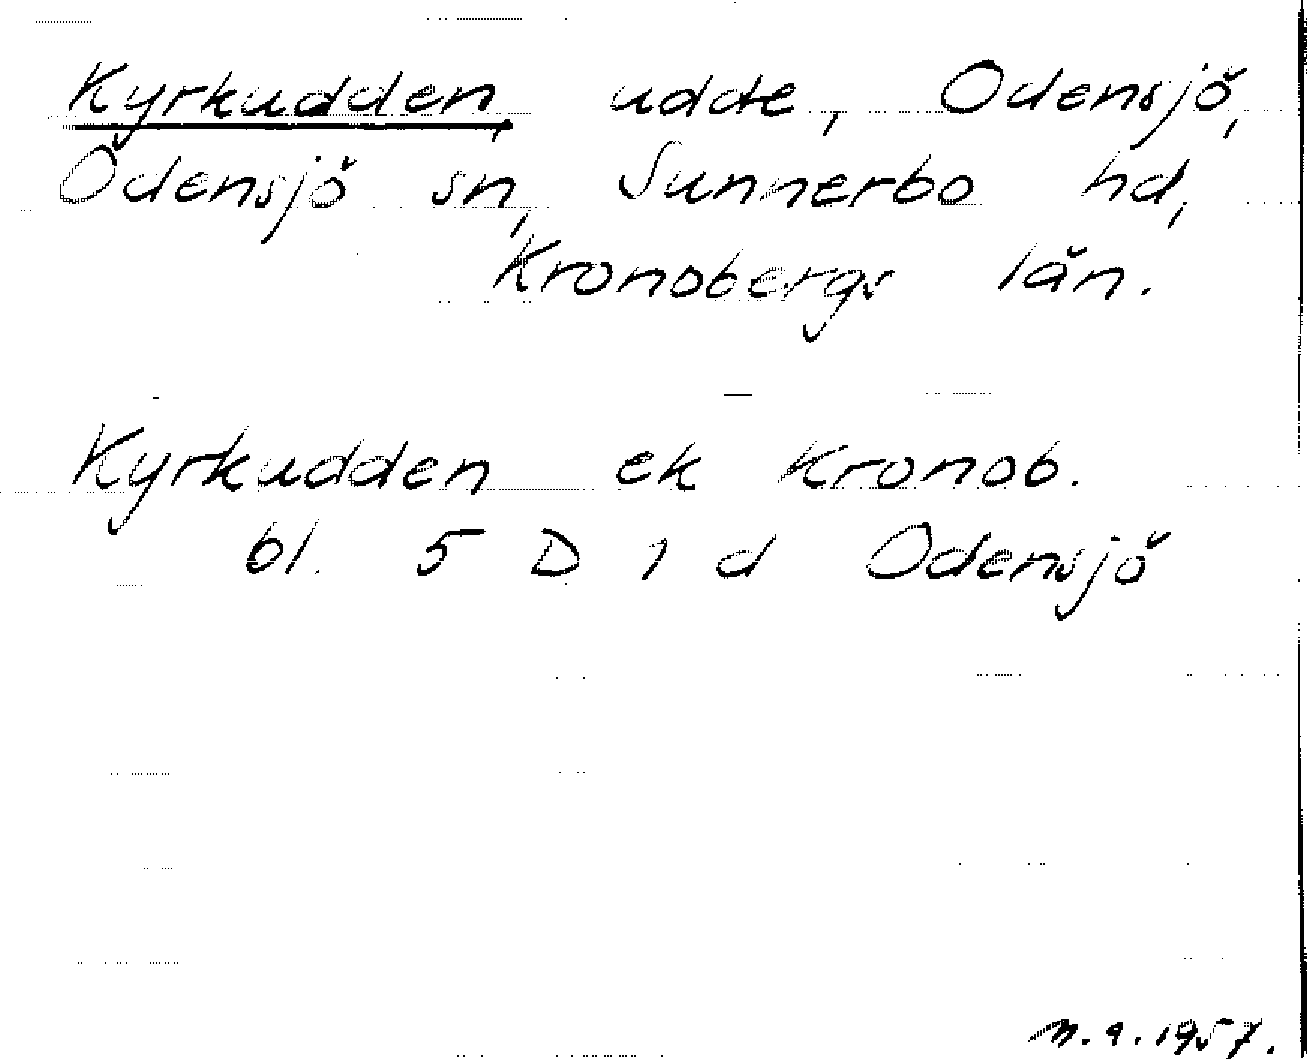 Kyrkudden, udde, Odensjö,
Odensjö sn, Sunnerbo hd,
Kronobergs län.
Kyrkudden ek Kronob.
bl. 5 D 1 d Odensjö
n.a.1957.